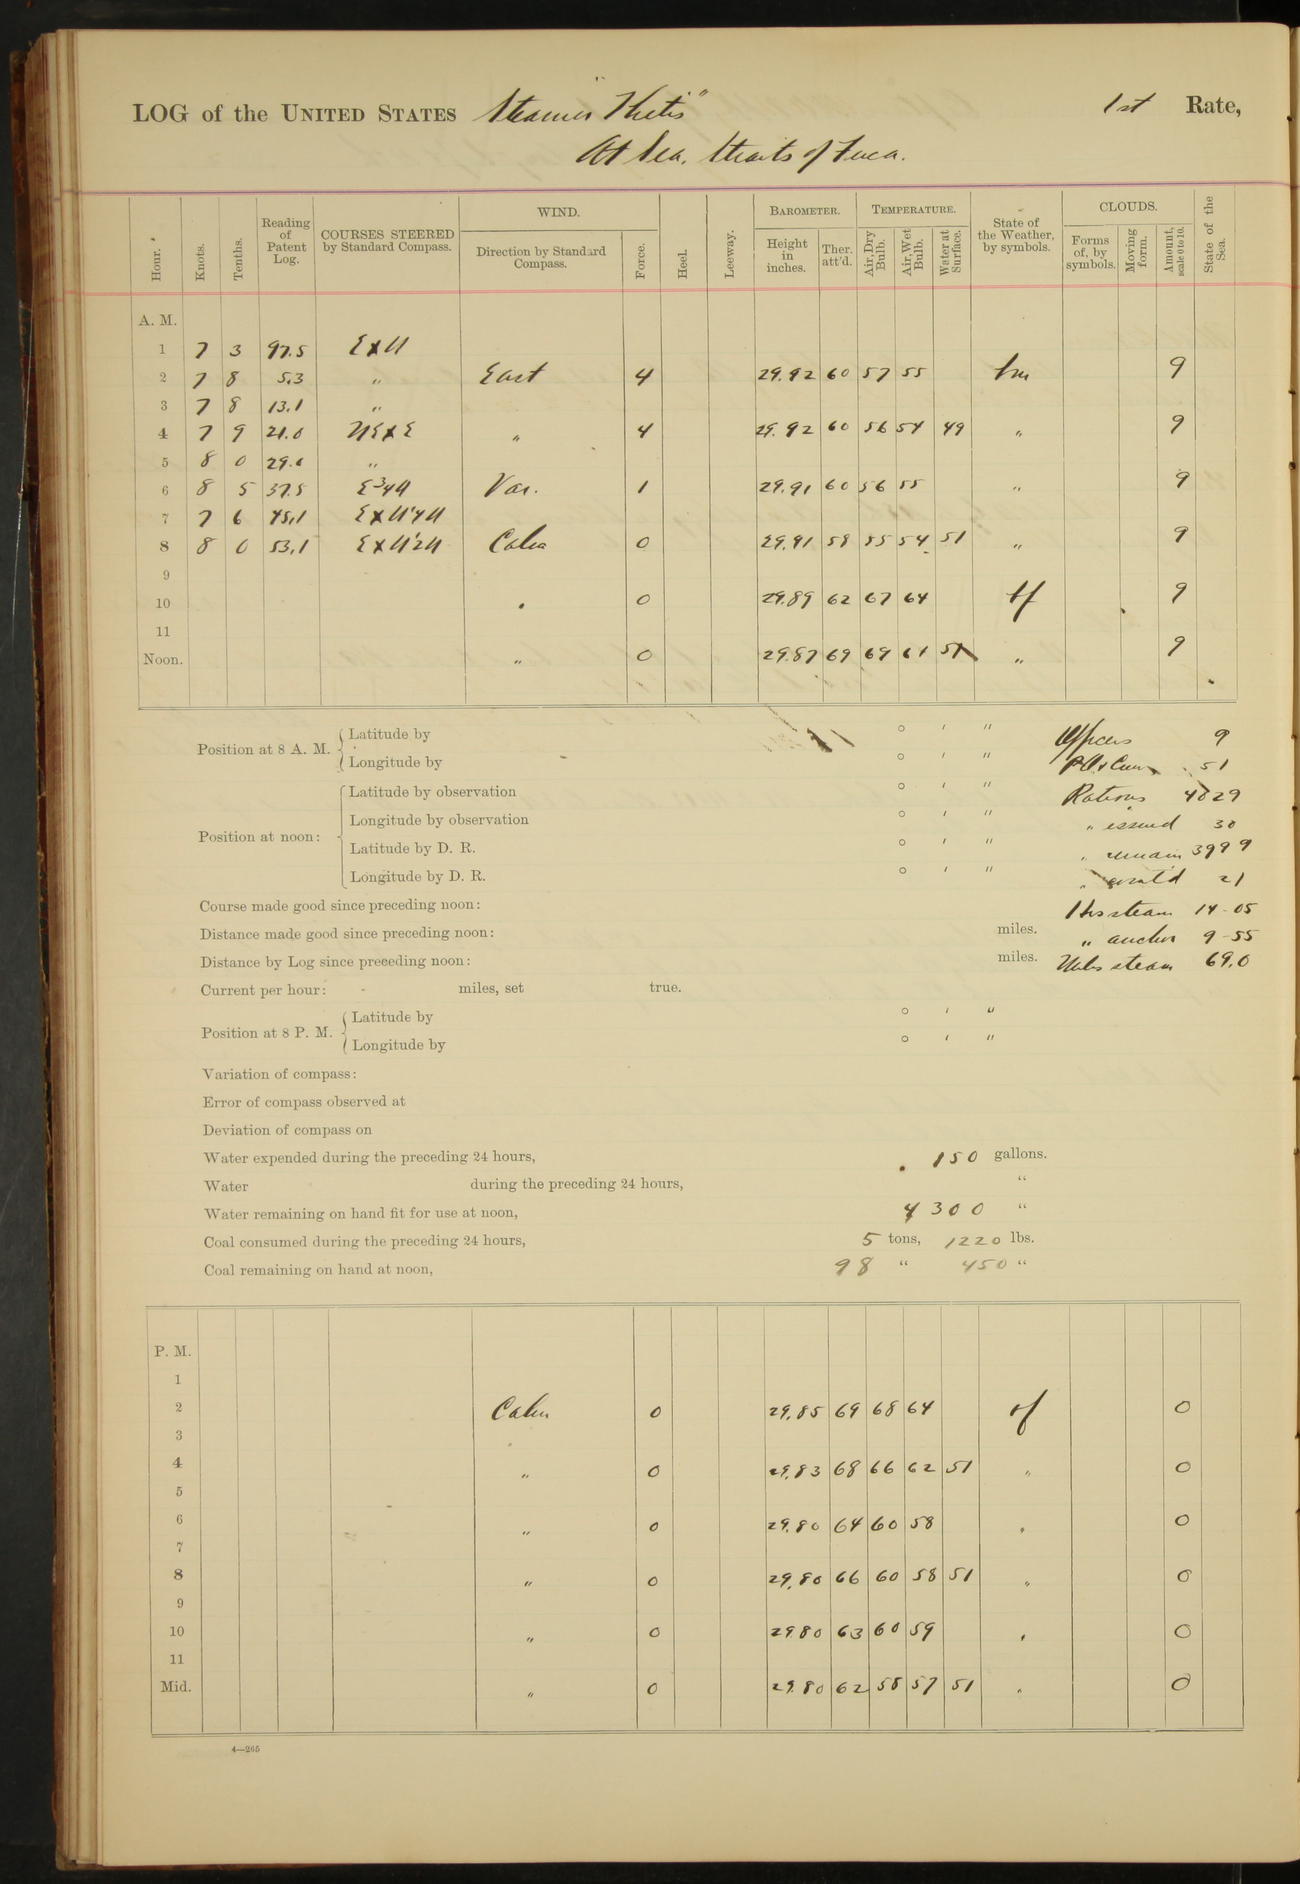 LOG of the UNITED STATES Steamer "Thetis" 1st Rate,
At Sea. Straits of Fuca.
Hour. Knots. Tenths. Reading of Patent Log. COURSES STEERED by Standard Compass. WIND. Direction by Standard Compass. Force. Heel. Leeway. BAROMETER. Height in inches. Ther. att'd. TEMPERATURE. Air, Dry Bulb. Air, Wet Bulb. Water at Surface. State of the Weather, by symbols. CLOUDS. Forms of, by symbols. Moving form. Amount, scale 0 to 10. State of the Sea.
A. M.
1 7 3 97.5 ExN
2 7 8 5.3 " East 4 29.92 60 57 55 9
3 7 8 13.1 "
4 7 9 21.0 NExE " 4 29.92 60 56 54 49 " 9
5 8 0 29.0 "
6 8 5 37.5 E3/4N Var. 1 29.91 60 56 55 " 9
7 7 6 45.1 ExN1/4N
8 8 0 53.1 ExN1/2N Calm 0 29.91 58 55 54 51 " 9
9
10 " 0 29.89 62 67 64 9
11
Noon. " 0 29.87 69 69 61 51 " 9
Position at 8 A. M. Latitude by ° ' " Officers 9
Longitude by ° ' " P.O. & Crew 51
Position at noon: Latitude by observation ° ' " Rations 4029
Longitude by observation ° ' " " issued 30
Latitude by D. R. ° ' " " remain 3999
Longitude by D. R. ° ' " " 21
Course made good since preceding noon: Hrs steam 14-05
Distance made good since preceding noon: miles. " anchor 9-55
Distance by Log since preceding noon: miles. Miles steam 69.0
Current per hour: miles, set true.
Position at 8 P. M. Latitude by ° ' "
Longitude by ° ' "
Variation of compass:
Error of compass observed at
Deviation of compass on
Water expended during the preceding 24 hours, 150 gallons.
Water during the preceding 24 hours, "
Water remaining on hand fit for use at noon, 4300 "
Coal consumed during the preceding 24 hours, 5 tons, 1220 lbs.
Coal remaining on hand at noon, 98 " 450 "
P. M.
1
2 Calm 0 29.85 69 68 64 of 0
3
4 " 0 29.83 68 66 62 51 " 0
5
6 " 0 29.80 64 60 58 " 0
7
8 " 0 29.80 66 60 58 51 " 0
9
10 " 0 29.80 63 60 59 " 0
11
Mid. " 0 29.80 62 58 57 51 " 0
4—265